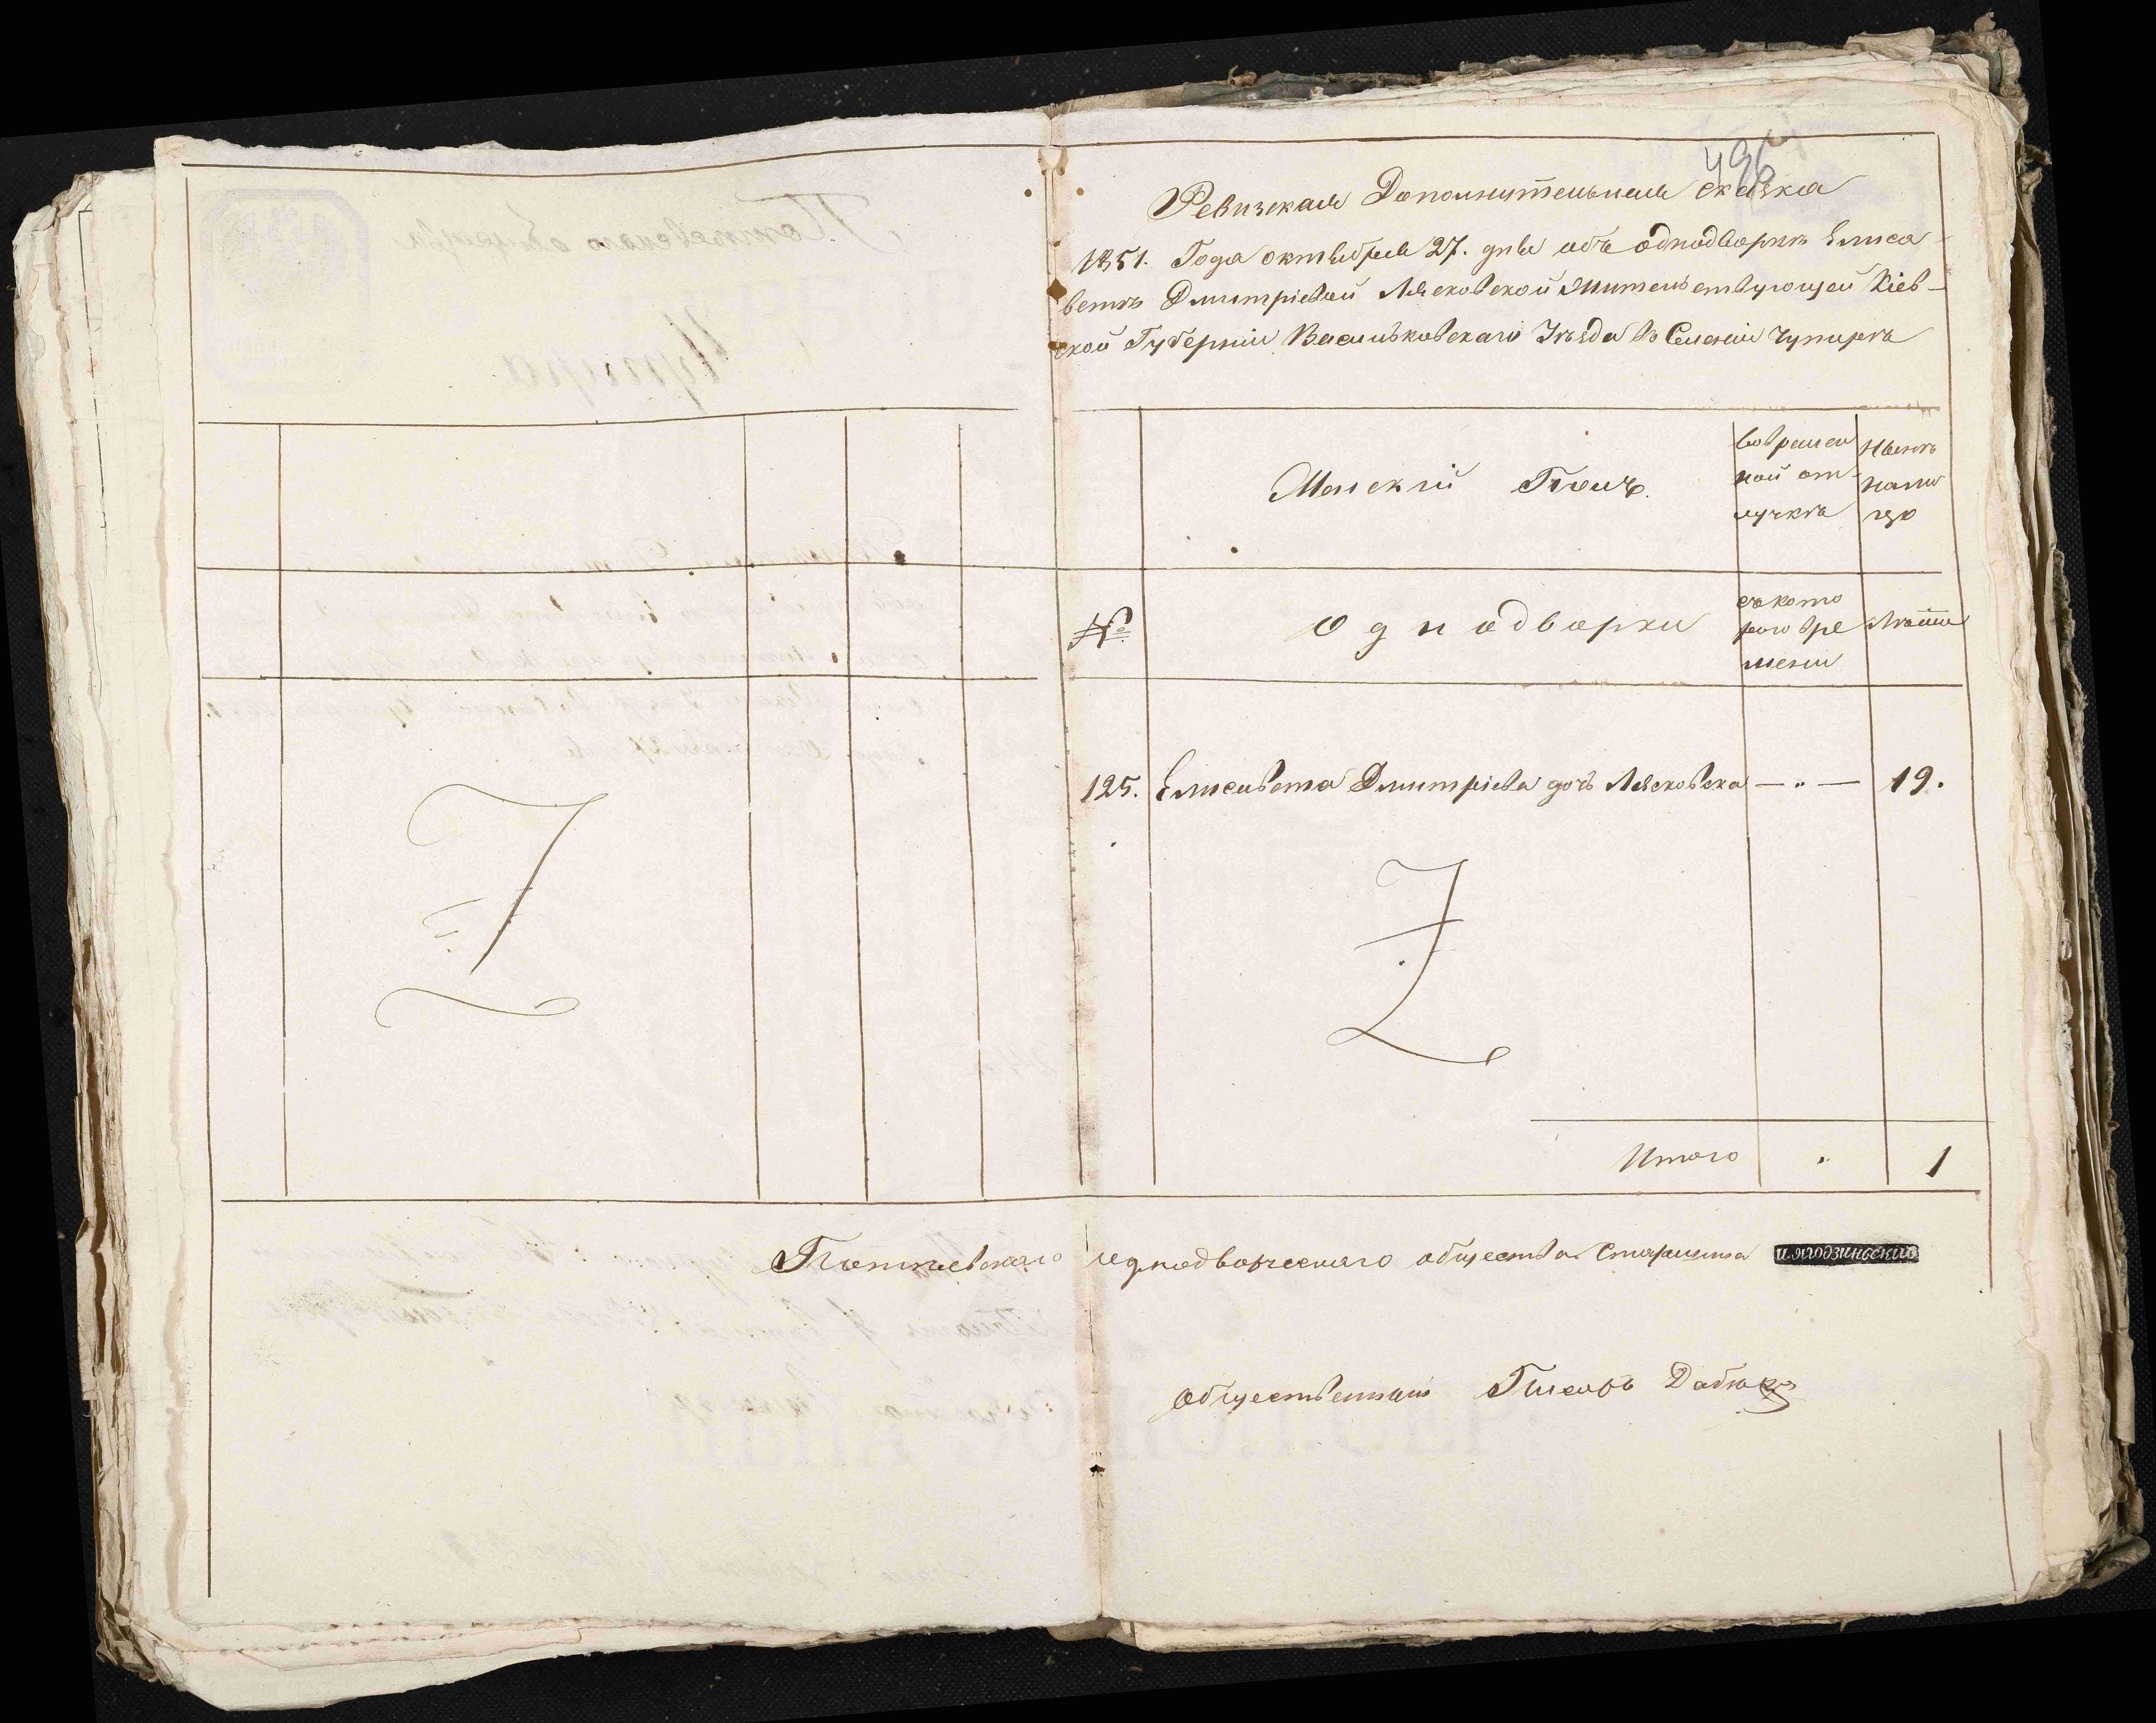 496
Ревизская Дополнительная сказка
1851. Года октября 27. дня объ однодворкѣ Елиса-
ветѣ Дмитріевой Лясковской жительствующей Кіев-
ской Губерніи Васильковскаго Уѣзда въ Селеніи Чупирѣ
Женскій Полъ.
во времен
ной от-
лучкѣ
Нынѣ
на ли
цо
№
Однодворки
съ кото
раго вре
мени
Лѣта
125. Елисавета Дмитріева дочь Лясковска — „ — 19.
Итого „ 1
однодворческаго общества Старшина
Общественный Писарь